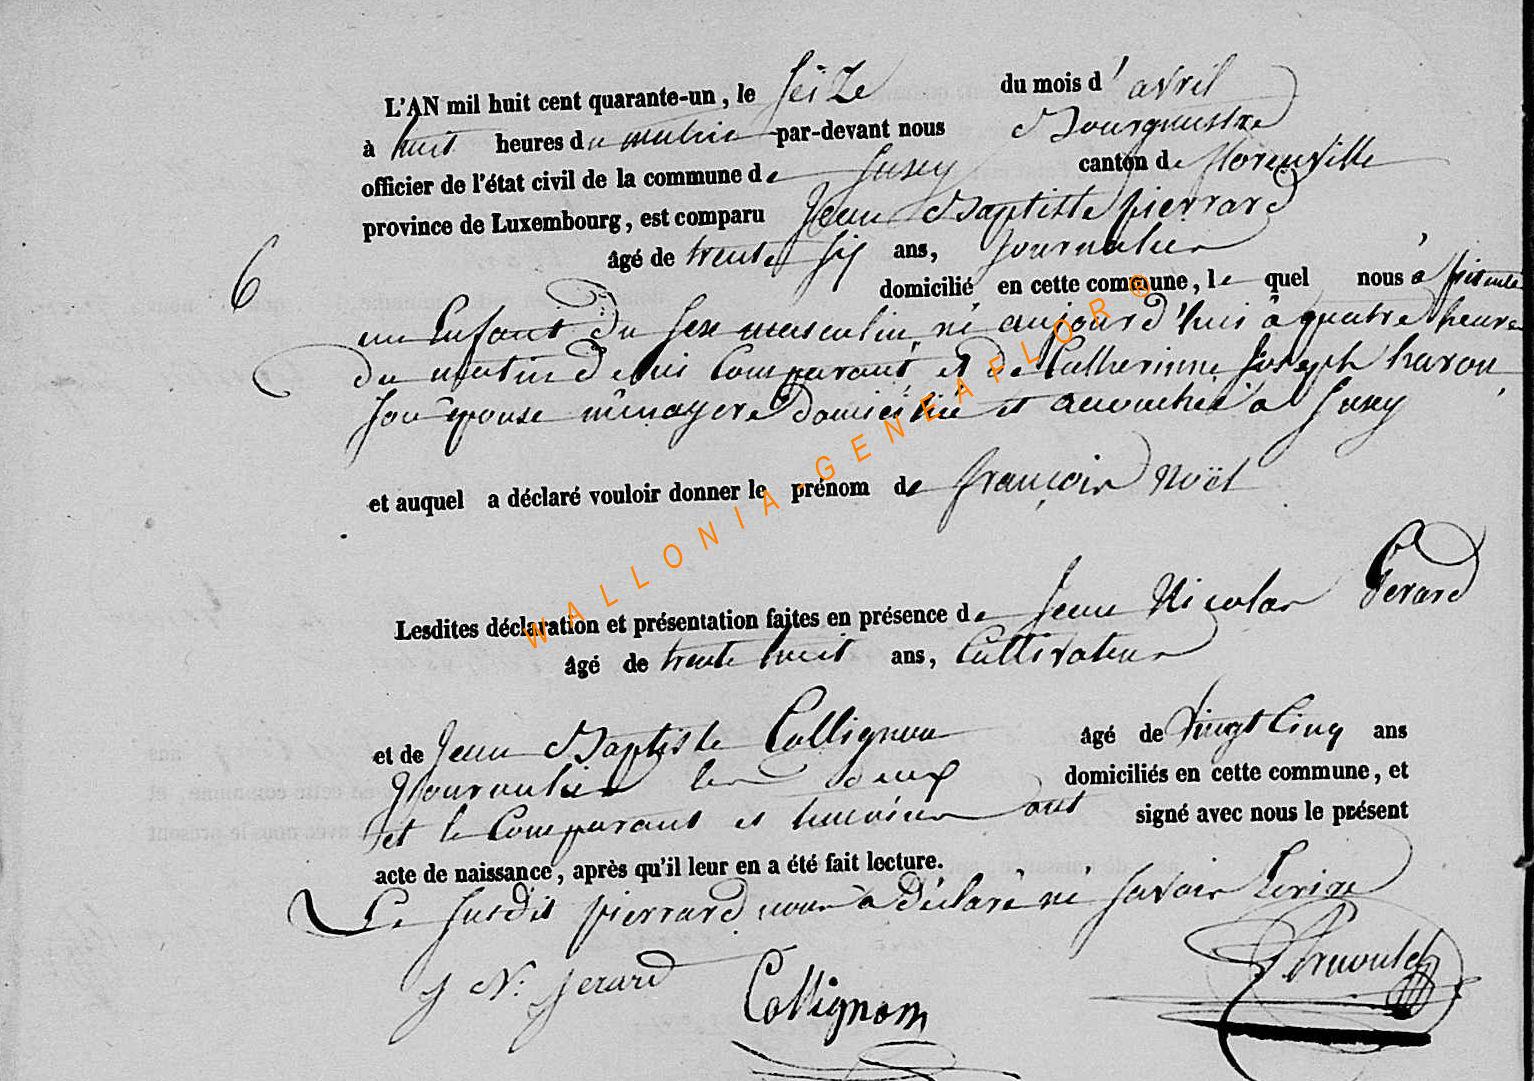 L'AN mil huit cent quarante-un, le seize du mois d'avril
à huit heures du matin par-devant nous Bourgmestre
officier de l'état civil de la commune de Suxy canton de florenville
province de Luxembourg, est comparu Jean Baptiste pierrard
âgé de trente six ans, Journalier
6
domicilié en cette commune, le quel nous à présenté
un Enfant du sexe masculin né aujourd'hui à quatre heure
du matin de lui Comparant et de Catherinne Joseph haron
son épouse ménagere domiciliée et accouchée à Suxy
et auquel a déclaré vouloir donner le prénom de françois Noël
Lesdites déclaration et présentation faites en présence de Jean Nicolas Gerard
âgé de trente huit ans, Cultivateur
et de Jean Baptiste Collignon âgé de vingt Cinq ans
Journalier les deux domiciliés en cette commune, et
et le Comparant et témoins ont signé avec nous le présent
acte de naissance, après qu'il leur en a été fait lecture.
Le susdit pierrard nous à déclaré ne savoir Ecrire
J N: Gerard Collignon
WALLONIA-GENEAFLOR ®